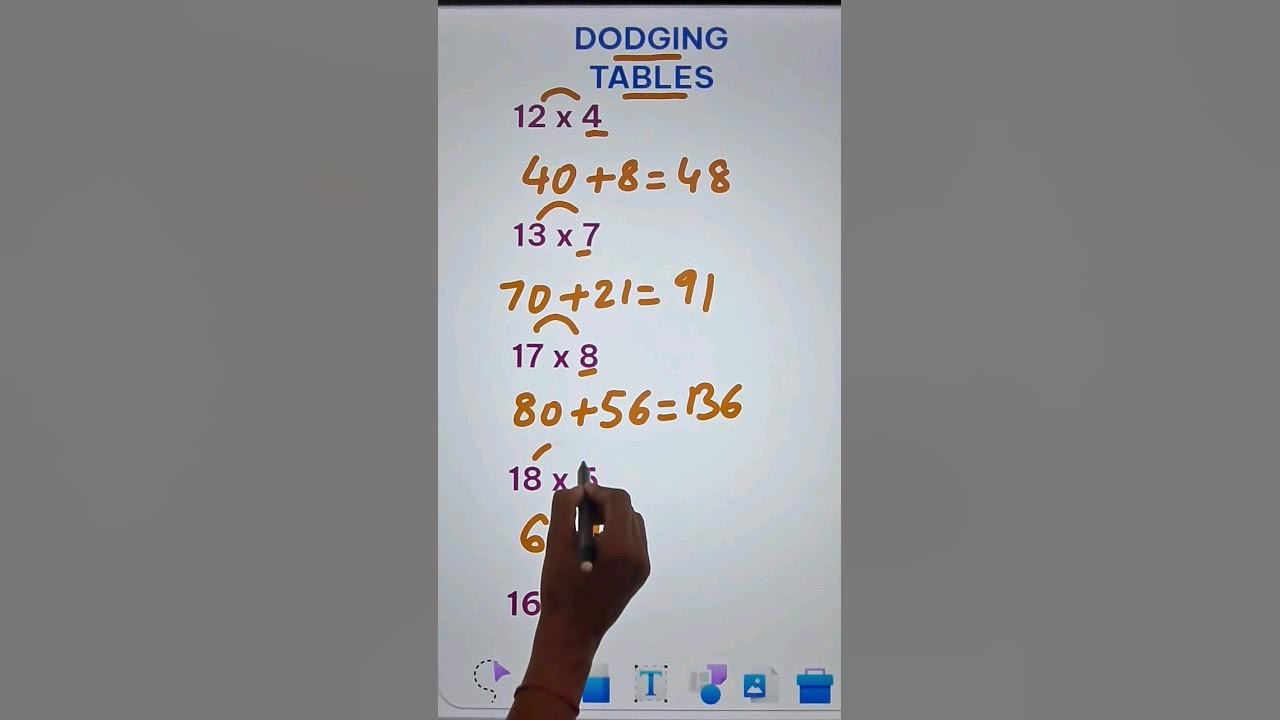 DODGING
TABLES
12 x 4
40+8=48
13 x 7
70+21=91
17 x 8
80+56=136
18 x
6
16
T